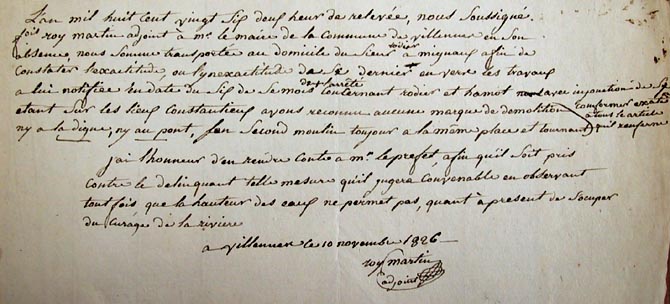 L'an mil huit cent vingt six deux heur de relevée, nous soussigné
roy martin adjoint à mr. le maire de la Commune de villenner en son
absence, nous somme transportée au domicile du sieur rodier à mignaux afin de
Constater l'exactitude, ou l'ynexactitude de ce dernier en vers les travaux
a lui notifiée en date du six de ce mois de l'arrêté concernant rodier et hamot avec injonction de se
conformer exact
a tous le article
qu'il renferme
etant sur les lieux Constantieux avons reconnu aucune marque de demolition
ny a la digue, ny au pont, son second moulin toujour a la même place et tournant
j'ai l'honneur d'en rendre Conte a mr. le prefet, afin qu'il soit pris
contre le delinquant telle mesure qu'il jugera Convenable en observant
tout fois que la hauteur des eaux ne permet pas, quant à present de s'ocuper
du Curâge de la riviere
a villenner le 10 novembre 1826
roy martin
adjoint